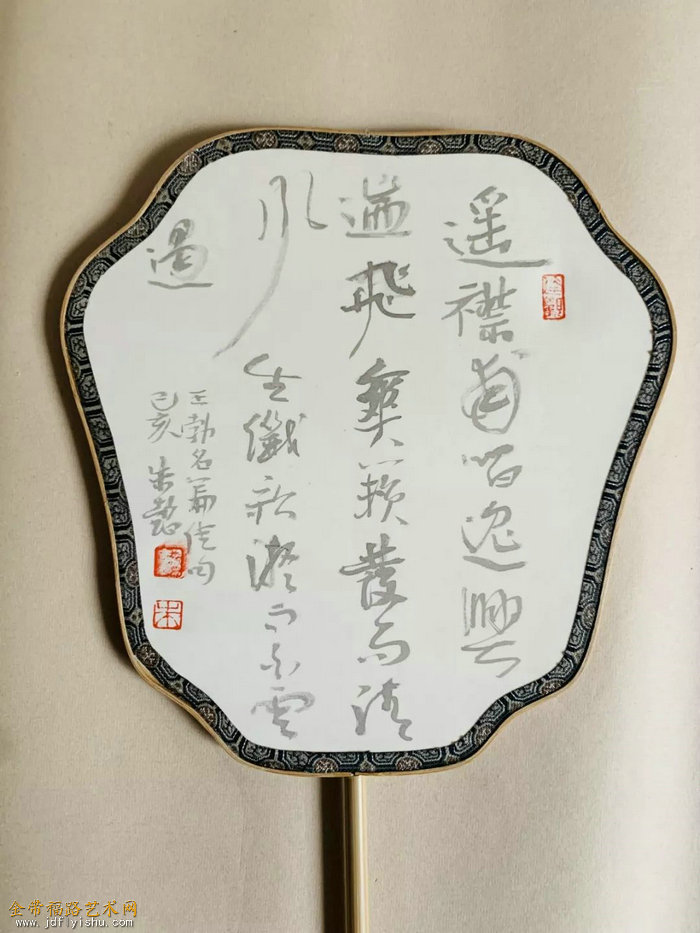 遥襟甫畅逸興
遄飛爽籟發而清
風生纖歌凝而白雲
遏
王勃名篇佳句
己亥 朱
朱
金带福路艺术网
www.jdflyishu.com